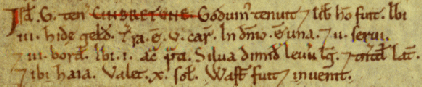 Id. G. ten CINDRETUNE. Godum tenuit 7 lib ho fuit. Ibi
.iii. hide geld. Tra. ē. v. car. In dn̄io. ē una. 7 ii. serui.
7 iii. bord. Ibi .i. ac p̄ti. Silua dimid leuū lḡ. 7 tn̄td lat̄.
7 ibi haia. Valet. x. sol. Wast fuit 7 inuenit.